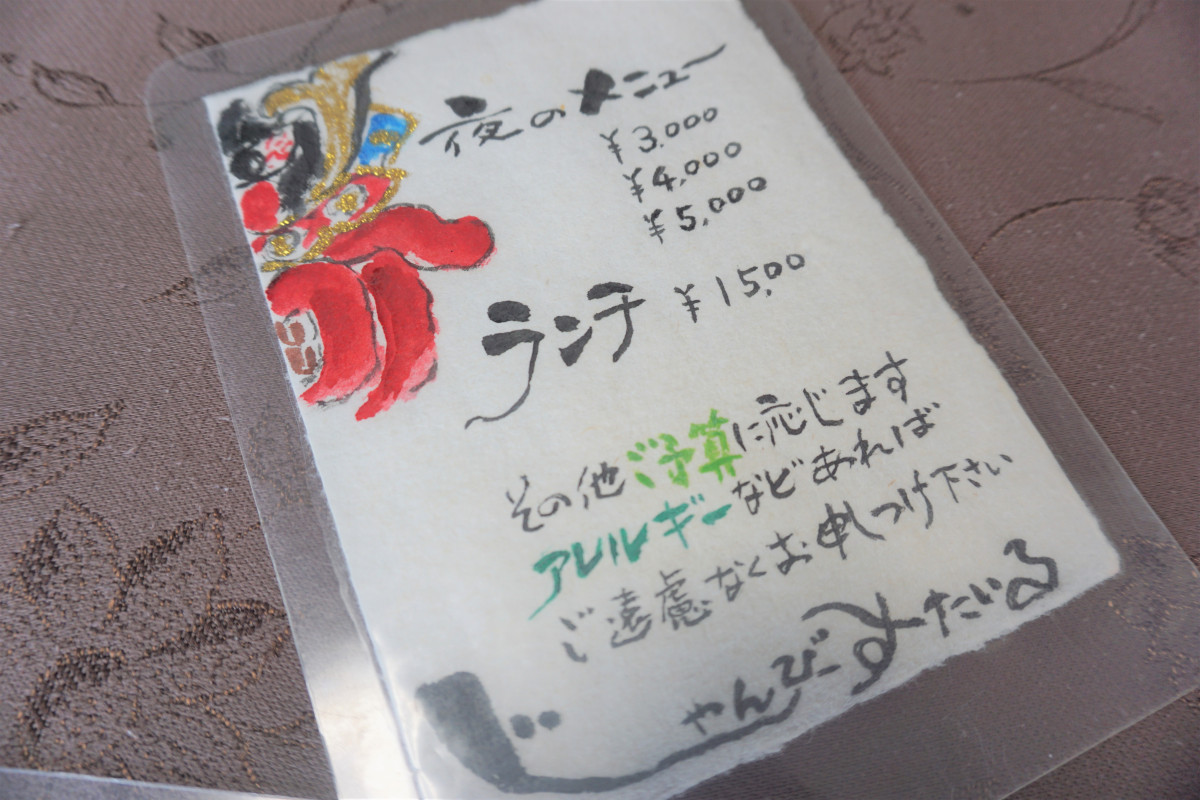 夜のメニュー
¥3,000
¥4,000
¥5,000
ランチ ¥15,00
その他ご予算に応じます
アレルギーなどあれば
ご遠慮なくお申しつけ下さい
じゃんびーすたいる